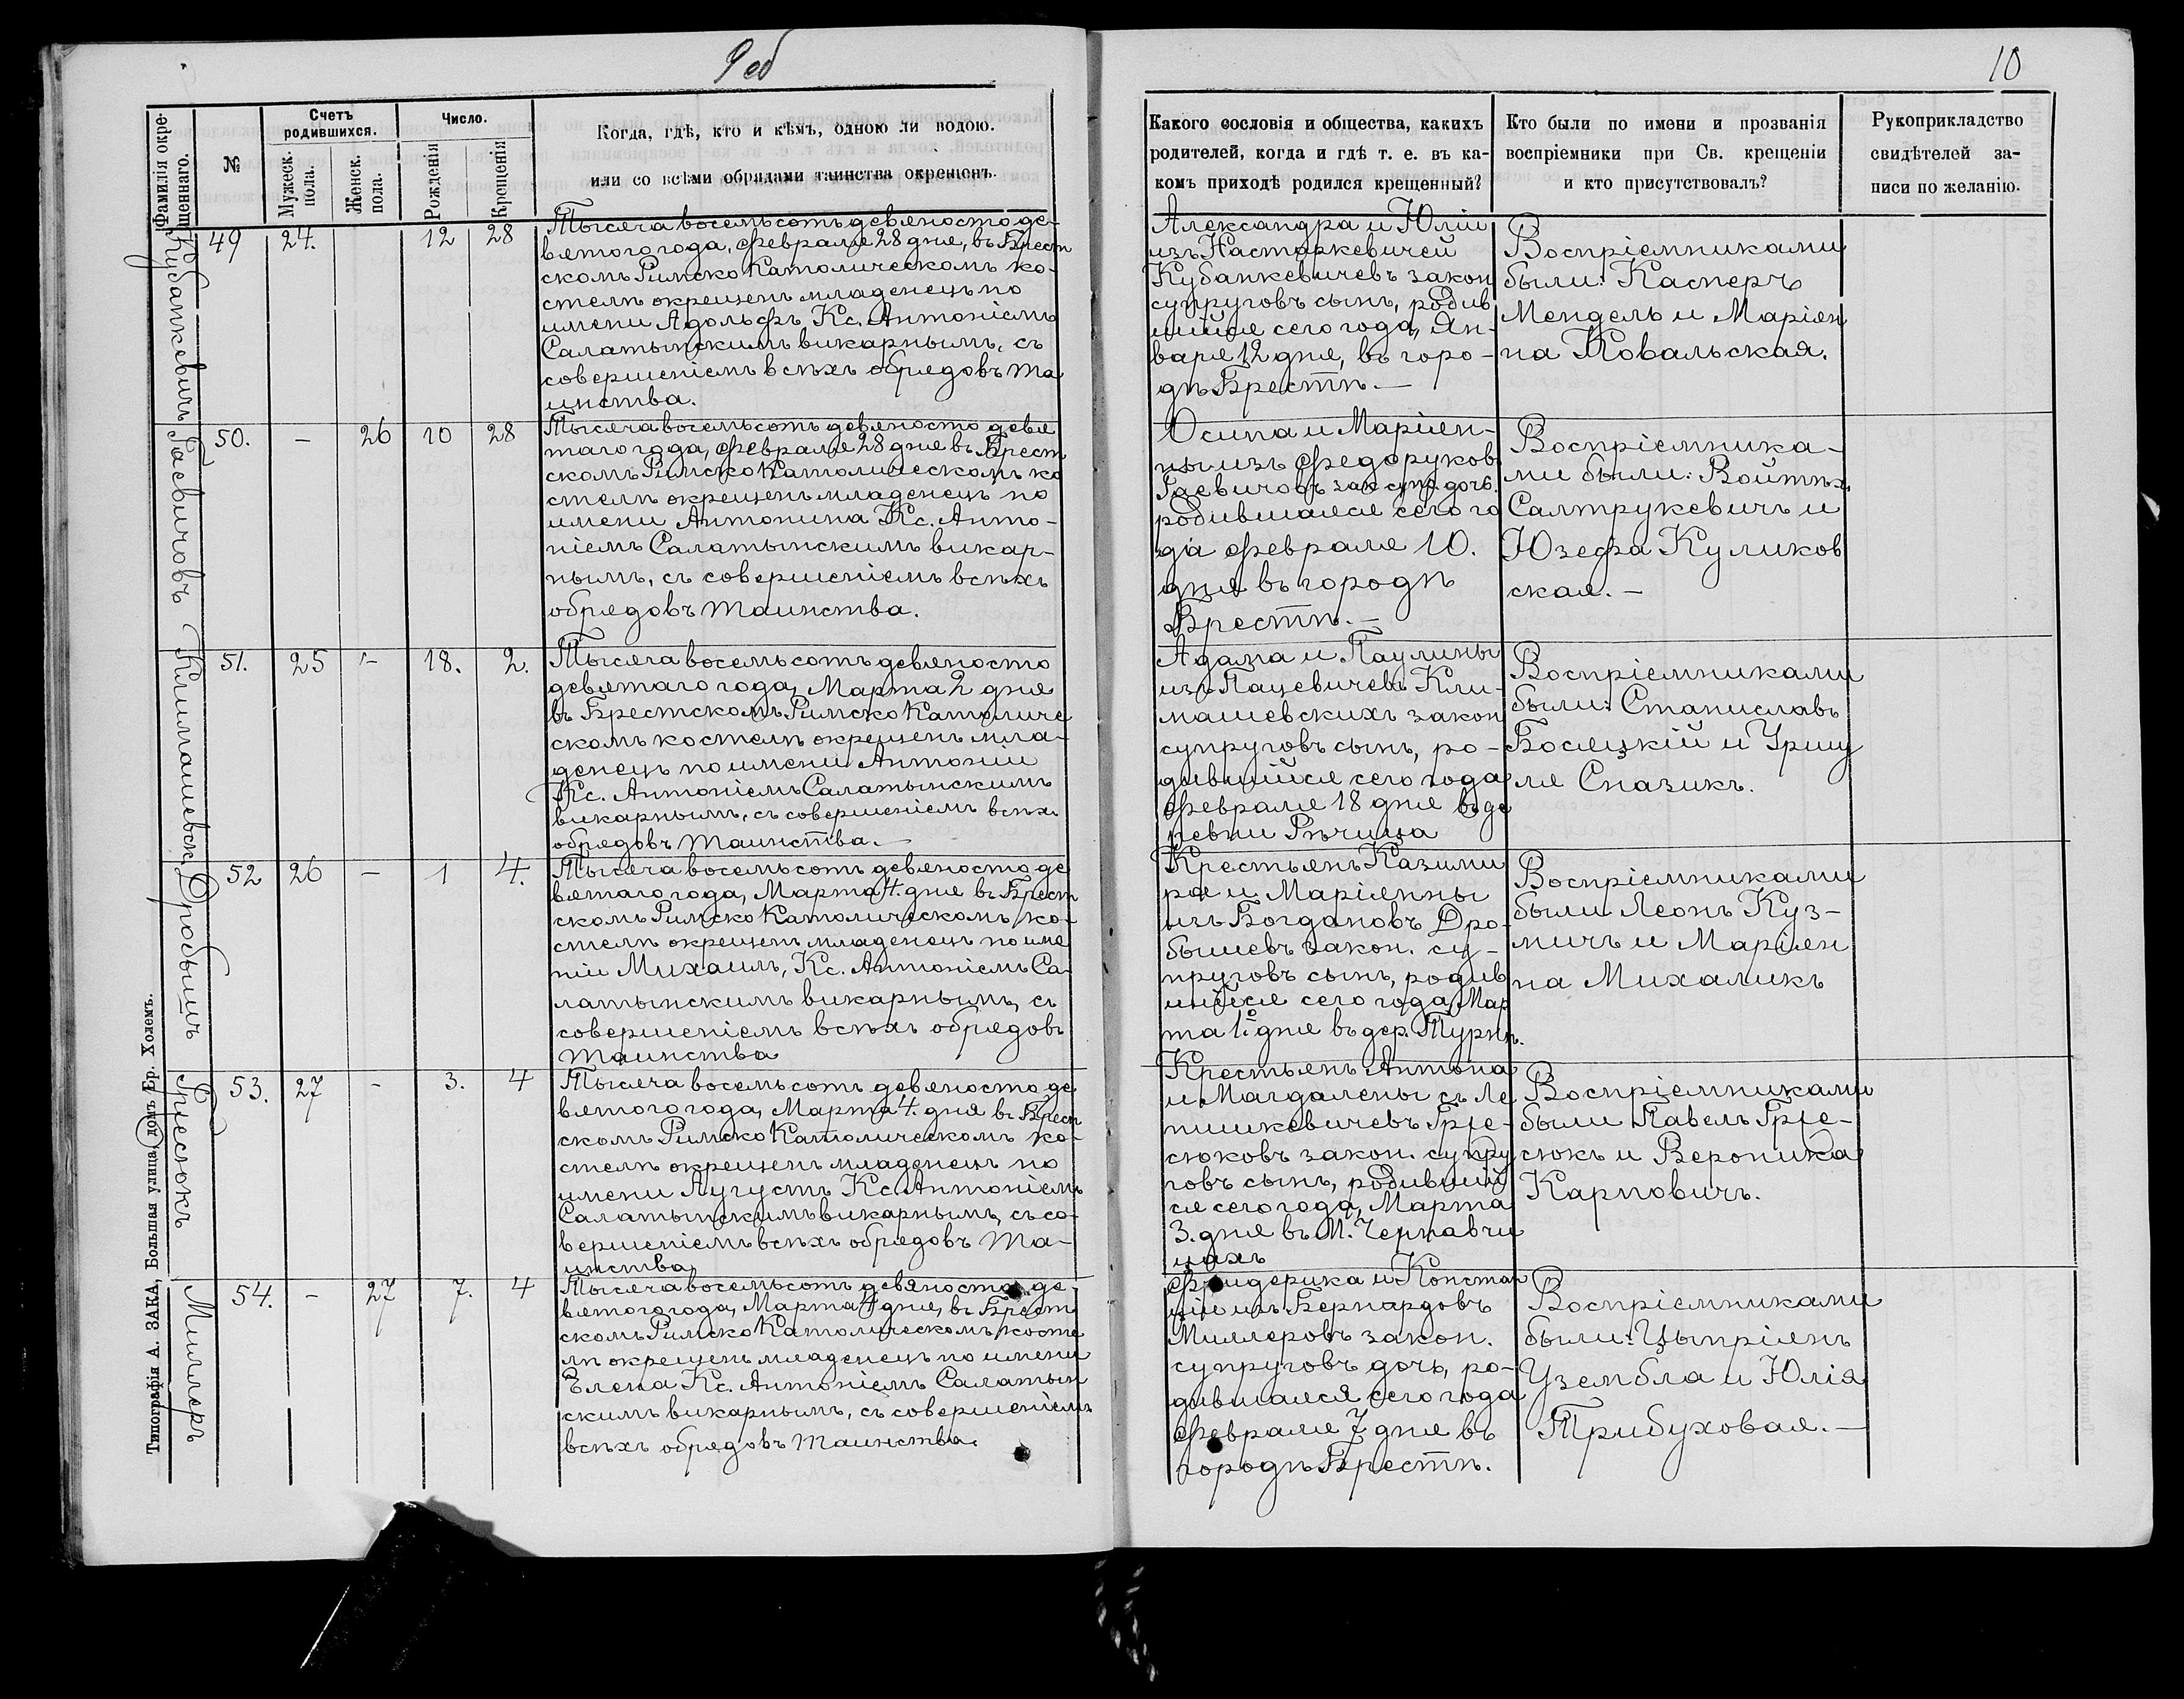 9 об
Фамилія окре-
щеннаго.
№
Счетъ
родившихся.
Мужеск.
пола.
Женск.
пола.
Число.
Рожденія
Крещенія
Когда, гдѣ, кто и кѣмъ, одною ли водою.
или со всѣми обрядами таинства окрещенъ.
Кубанкевичъ
49 24. 12 28
Тысяча восемьсотъ девяносто де-
вятого года, февраля 28 дня, въ Брест
скомъ Римско Католическомъ ко-
стелѣ окрещенъ младенецъ по
имени Адольфъ, Кс. Антоніемъ
Салатынскимъ викарнымъ, съ
совершеніемъ всѣхъ обрядовъ та
инства.
Гаевичовъ
50. – 26 10 28
Тысяча восемьсотъ девяносто девя
таго года, февраля 28 дня въ Брест
скомъ Римско Католическомъ ко
стелѣ окрещенъ младенецъ по
имени Антонина Кс. Анто-
ніемъ Салатынскимъ викар-
нымъ, съ совершеніемъ всѣхъ
обрядовъ таинства.
Климашевск.
51. 25 – 18. 2.
Тысяча восемьсотъ девяносто
девятаго года, Марта 2 дня
въ Брестскомъ Римско Католиче
скомъ костелѣ окрещенъ мла-
денецъ по имени Антоній
Кс. Антоніемъ Салатынскимъ
викарнымъ, съ совершеніемъ всѣхъ
обрядовъ таинства.–
Дробышъ
52 26 – 1 4.
Тысяча восемьсотъ девяносто де
вятаго года, Марта 4. дня въ Брест
скомъ Римско Католическомъ ко-
стелѣ окрещенъ младенецъ по име
ніи Михаилъ, Кс. Антоніемъ Са-
латынскимъ викарнымъ, съ
совершеніемъ всѣхъ обрядовъ
таинства
Гресюкъ
53. 27 - 3. 4
Тысяча восемьсотъ девяносто де
вятого года, Марта 4. дня въ Брест
скомъ Римско Католическомъ ко-
стелѣ окрещенъ младенецъ по
имени Аугустъ Кс. Антоніемъ
Салатынскимъ викарнымъ, съ со-
вершеніемъ всѣхъ обрядовъ та-
инства
Миллеръ
54. – 27 7. 4
Тысяча восемьсотъ девяносто де-
вятого года, Марта 4 дня, въ Брест
скомъ Римско Католическомъ косте
лѣ окрещенъ младенецъ по имени
Елена Кс. Антоніемъ Салатын
скимъ викарнымъ, съ совершеніемъ
всѣхъ обрядовъ таинства.
Типографія А. ЗАКА, Большая улица, домъ Ер. Холемъ.
10
Какого сословія и общества, какихъ
родителей, когда и гдѣ т. е. въ ка-
комъ приходѣ родился крещенный?
Кто были по имени и прозванія
воспріемники при Св. крещеніи
и кто присутствовалъ?
Рукоприкладство
свидѣтелей за-
писи по желанію.
Александра и Юліи
изъ Настаркевичей
Кубанкевичевъ закон
супруговъ сынъ, родив
шійся сего года, Ян-
варя 12 дня, въ горо-
дѣ Брестѣ.–
Воспріемниками
были: Касперъ
Мендель и Маріян
на Ковальская.
Осипа и Маріян-
ны изъ Федоруков
Гаевичовъ зак супр. дочь.
родившаяся сего го
да февраля 10.
дня въ городѣ
Брестѣ.–
Воспріемника-
ми были: Войтѣх
Салтрукевичъ и
Юзефа Куликов
ская.–
Адама и Паулины
изъ Пацевичевъ Кли-
машевскихъ закон
супруговъ сынъ, ро-
дившійся сего года
февраля 18 дня въ де
ревни Рѣчица
Воспріемниками
были: Станиславъ
Босяцкій и Уршу
ля Сназикъ.
Крестьянъ Казими
ра и Маріянны
изъ Богдановъ Дро-
бышевъ закон. су-
пруговъ сынъ, родив
шійся сего года, Мар
та 1го дня въ дер. Турнѣ.
Воспріемниками
были Леонъ Куз-
мичъ и Маріян
на Михаликъ
Крестьянъ Антона
и Магдалены съ Ле
пишкевичевъ Гре-
сюковъ закон. супру
говъ сынъ, родивший
ся сего года, Марта
3. дня въ М. Чернавчи
цахъ
Воспріемниками
были Павелъ Гре-
сюкъ и Вероника
Карповичъ.
Фридерика и Констан
ціи изъ Бернардовъ
Миллеровъ закон.
супруговъ дочь, ро-
дившаяся сего года
февраля 7 дня въ
городѣ Брестѣ.
Воспріемниками
были: Цыпріянъ
Узембла и Юлія
Трибуховая.–